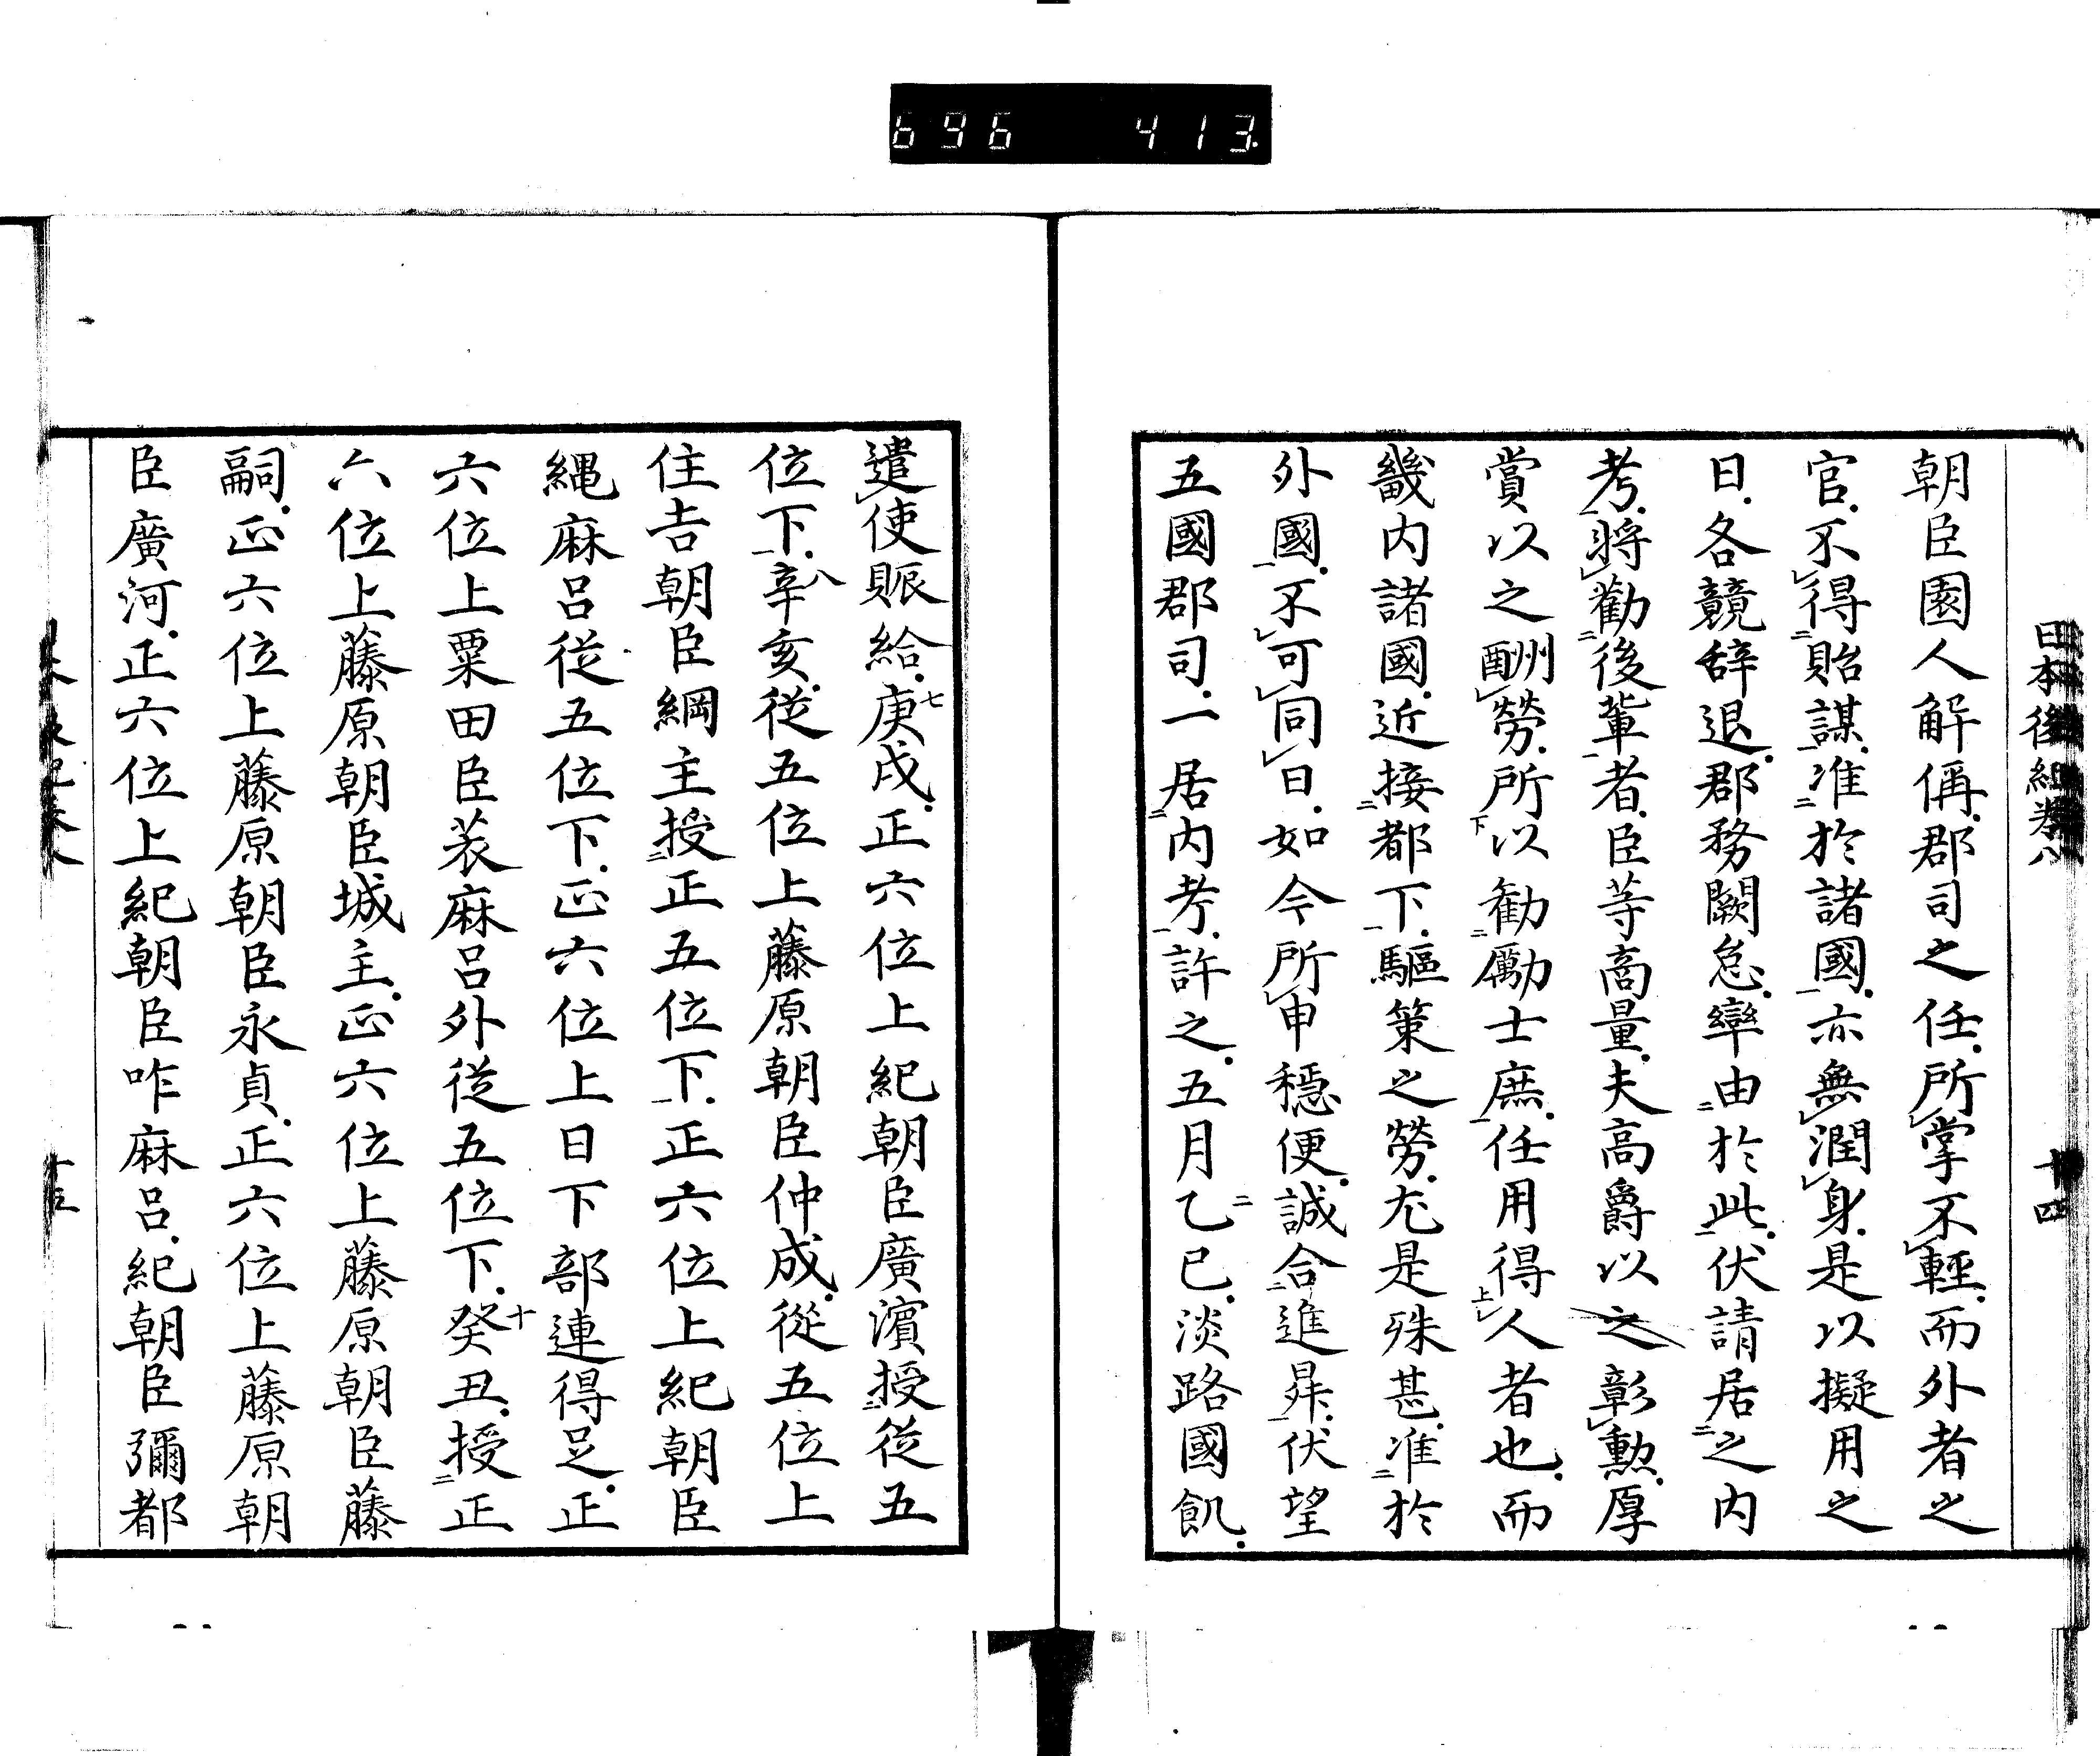 696 413
日本後紀卷八 十四
朝臣園人解偁郡司之任所掌不輕而外者之
官不得貽謀准於諸國亦無潤身是以擬用之
日各競辞退郡務闕怠率由於此伏請居之内
考將勸後輩者臣等商量夫高爵以之彰勲厚
賞以之酬勞所以勸勵士庶任用得人者也而
畿内諸國近接都下驅策之勞尤是殊甚准於
外國不可同日如今所申穩便誠合進昇伏望
五國郡司一居内考許之五月乙巳淡路國飢
遣使賑給庚戌正六位上紀朝臣廣濱授従五
位下辛亥従五位上藤原朝臣仲成從五位上
住吉朝臣綱主授正五位下正六位上紀朝臣
縄麻呂従五位下正六位上日下部連得足正
六位上粟田臣蓑麻呂外従五位下癸丑授正
六位上藤原朝臣城主正六位上藤原朝臣藤
嗣正六位上藤原朝臣永貞正六位上藤原朝
臣廣河正六位上紀朝臣咋麻呂紀朝臣彌都